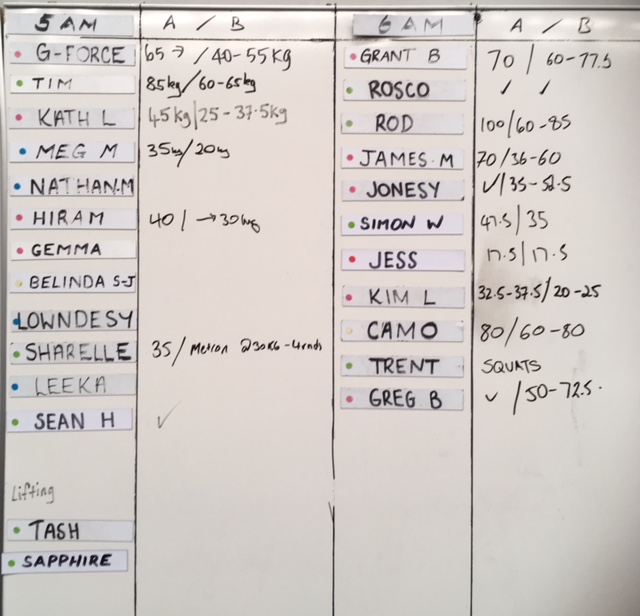 5 AM A / B
G-FORCE 65 → / 40-55 Kg
TIM 85kg/60-65kg
KATH L 45kg|25-37.5kg
MEG M 35kg/20kg
NATHAN.M
HIRAM 40 / → 30kg
GEMMA
BELINDA S-J
LOWNDESY
SHARELLE 35 / Metcon @30KG - 4rnds
LEEKA
SEAN H ✓
Lifting
TASH
SAPPHIRE
6 AM A / B
GRANT B 70 / 60-77.5
ROSCO ✓ ✓
ROD 100/60-85
JAMES.M 70/36-60
JONESY ✓/35-52.5
SIMON W 47.5/35
JESS 17.5/17.5
KIM L 32.5-37.5/20-25
CAMO 80/60-80
TRENT SQUATS
GREG B ✓ /50-72.5.